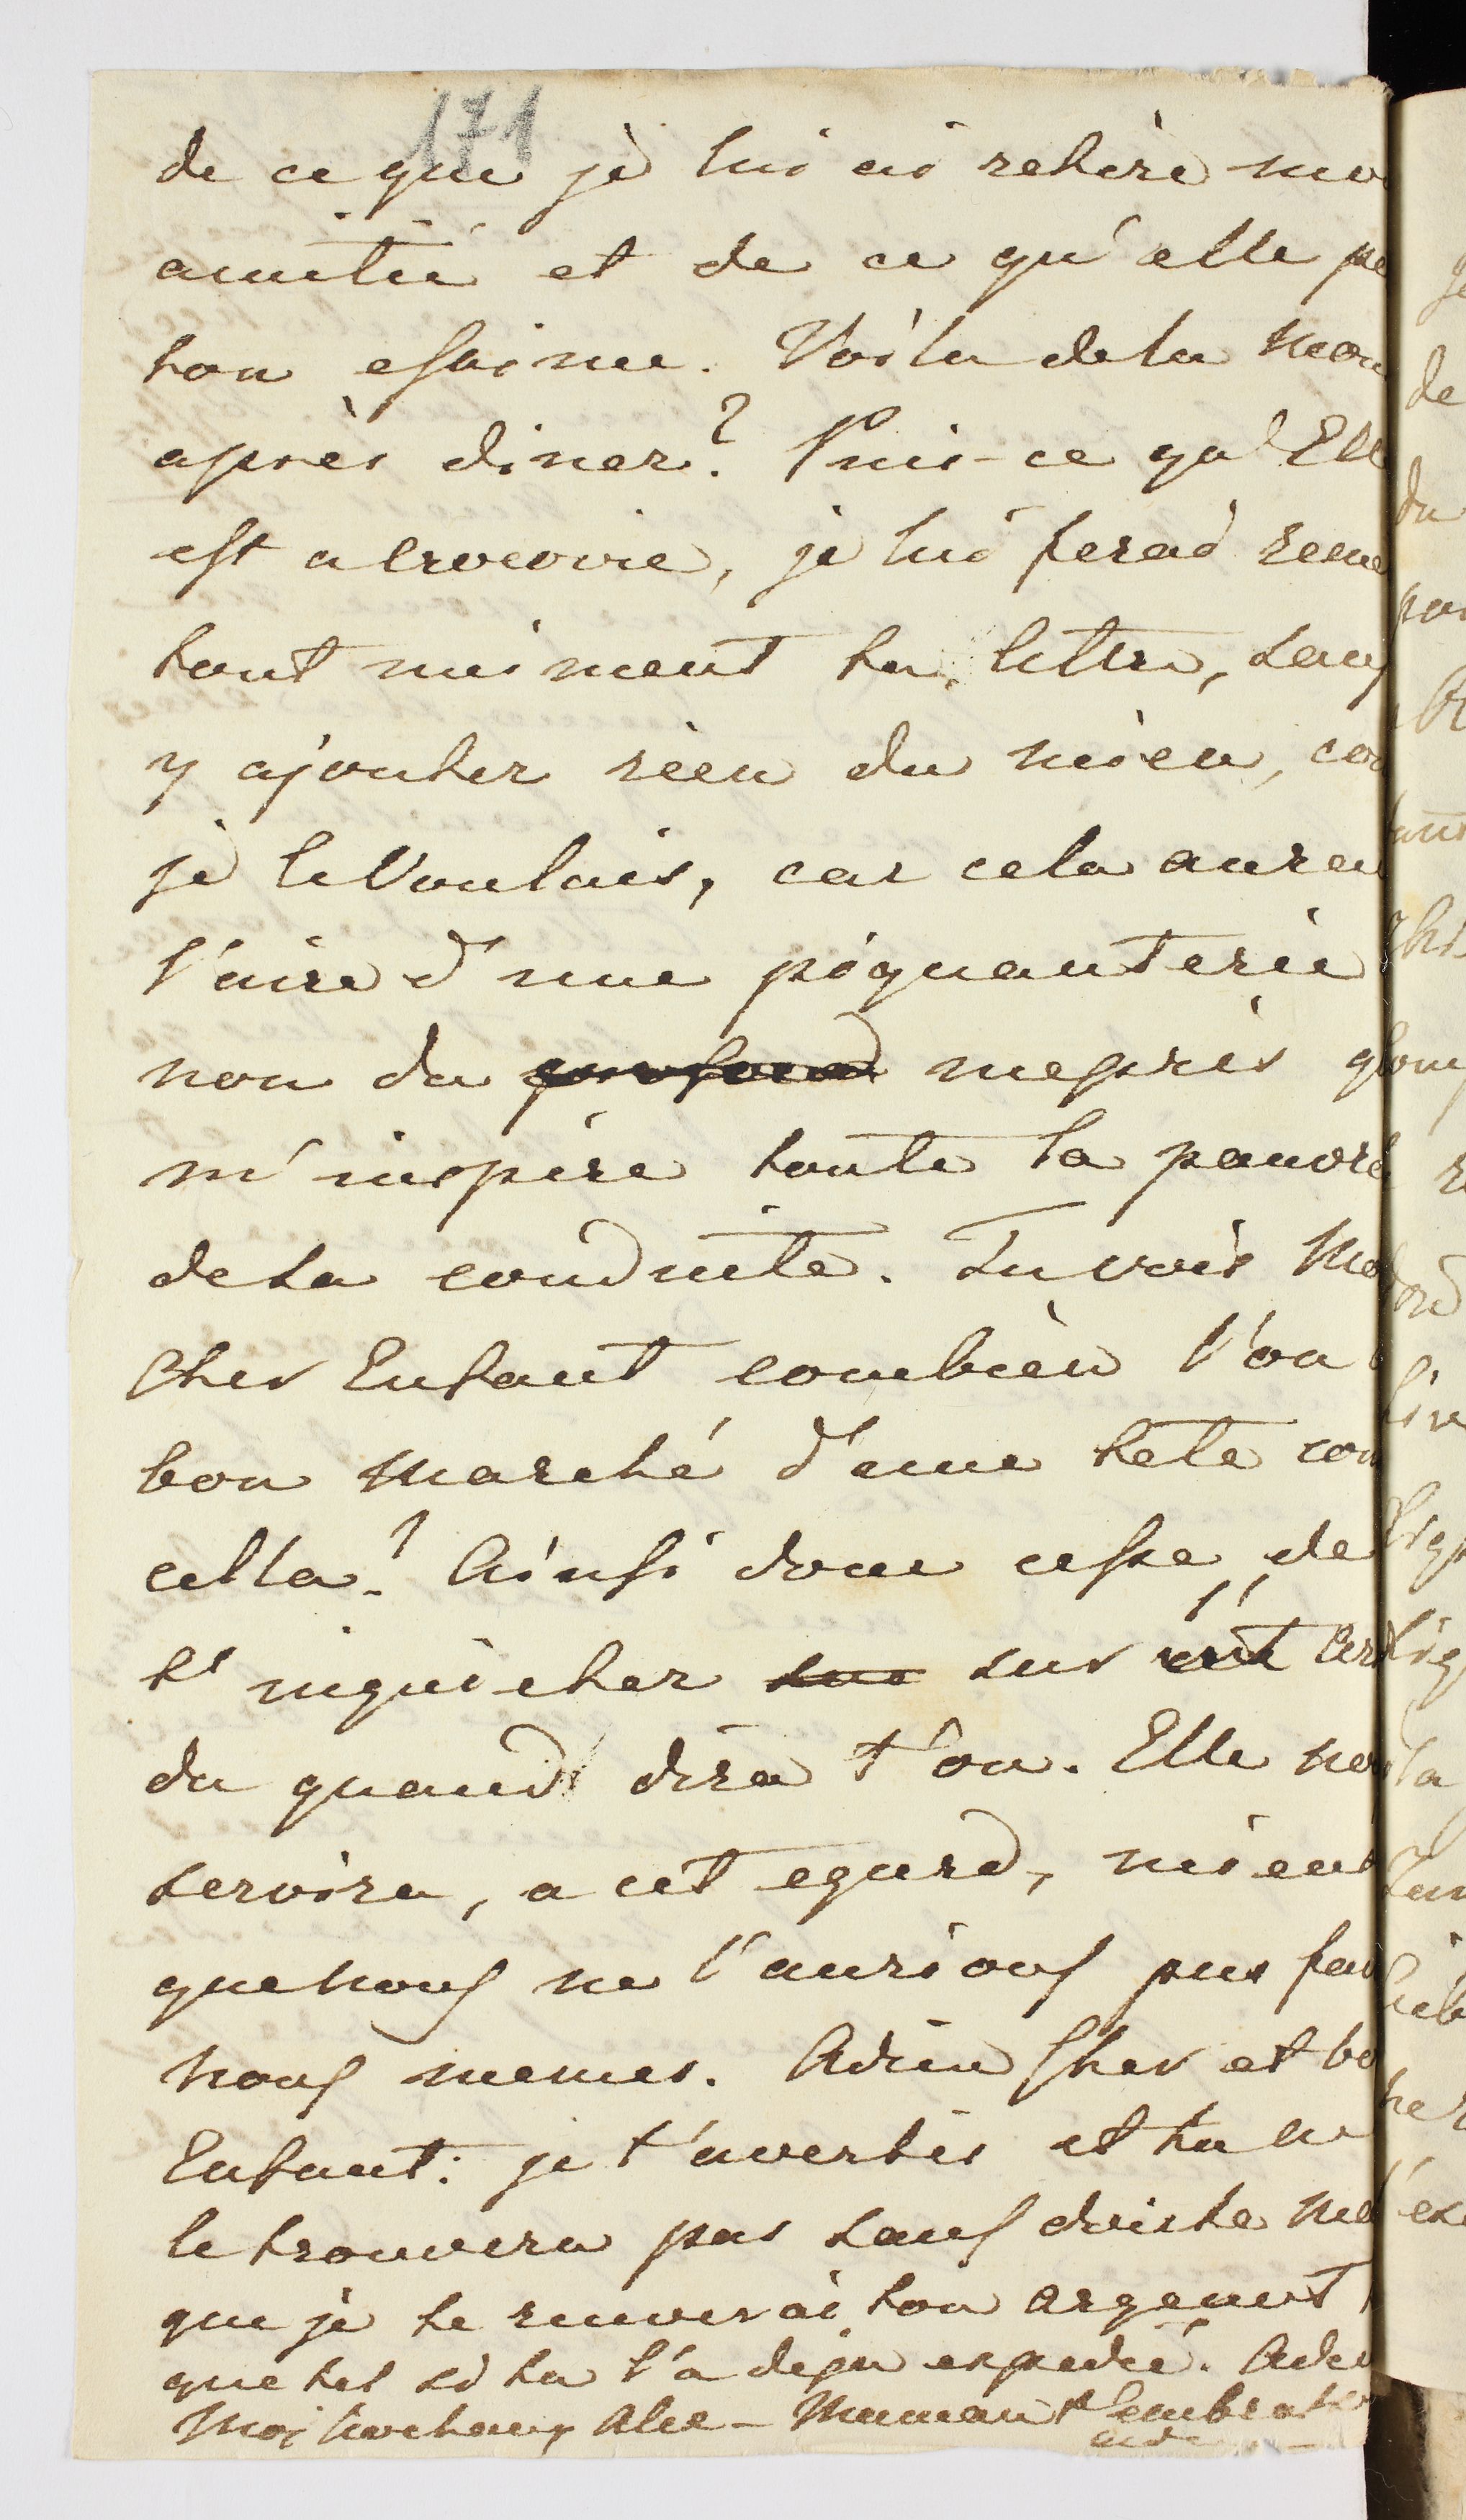 171
de ce que je lui ai retiré mo
amitié et de ce qu'elle pe
ton estime. Voila de la mou
après diner? Puis-ce qu'Ell
est a Crocovie, je lui ferai reme
tout uniment ta lettre, sans
y ajouter rien du mien, co
je le Voulais, car cela aurai
l'aire d'une piquanterie
non du profond mepris
m'inspire toute la pauvre
de sa conduite. Tu vois Mo
Cher Enfant combien l'on
bon marché d'une tete com
cella? Ainsi donc cesse de
t'inquieter sur sur
du quand dira t'on. Elle no
servira, a cet egard, mieux
que nous ne l'aurions pas fai
nous memes. Adieu Cher et bo
Enfant: je t'avertis et tu ne
le trouvera pas sans doiste
que je te renverai ton argent
que tel si tu l'a deja expedié. Adie
Moi Alex- Maman t'embrasse